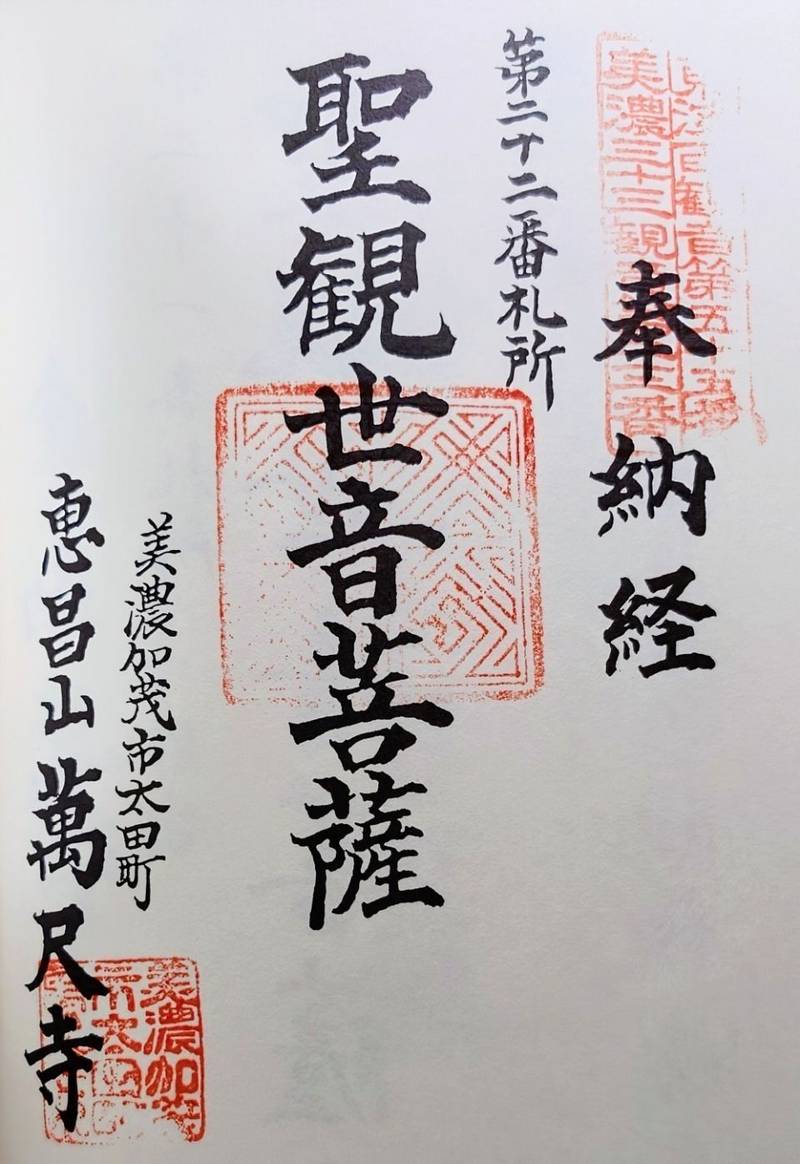 百観音第五十五
美濃三十三観
奉納経
第二十二番札所
聖観世音菩薩
美濃加茂市太田町
恵昌山萬尺寺
美濃加茂
市太田